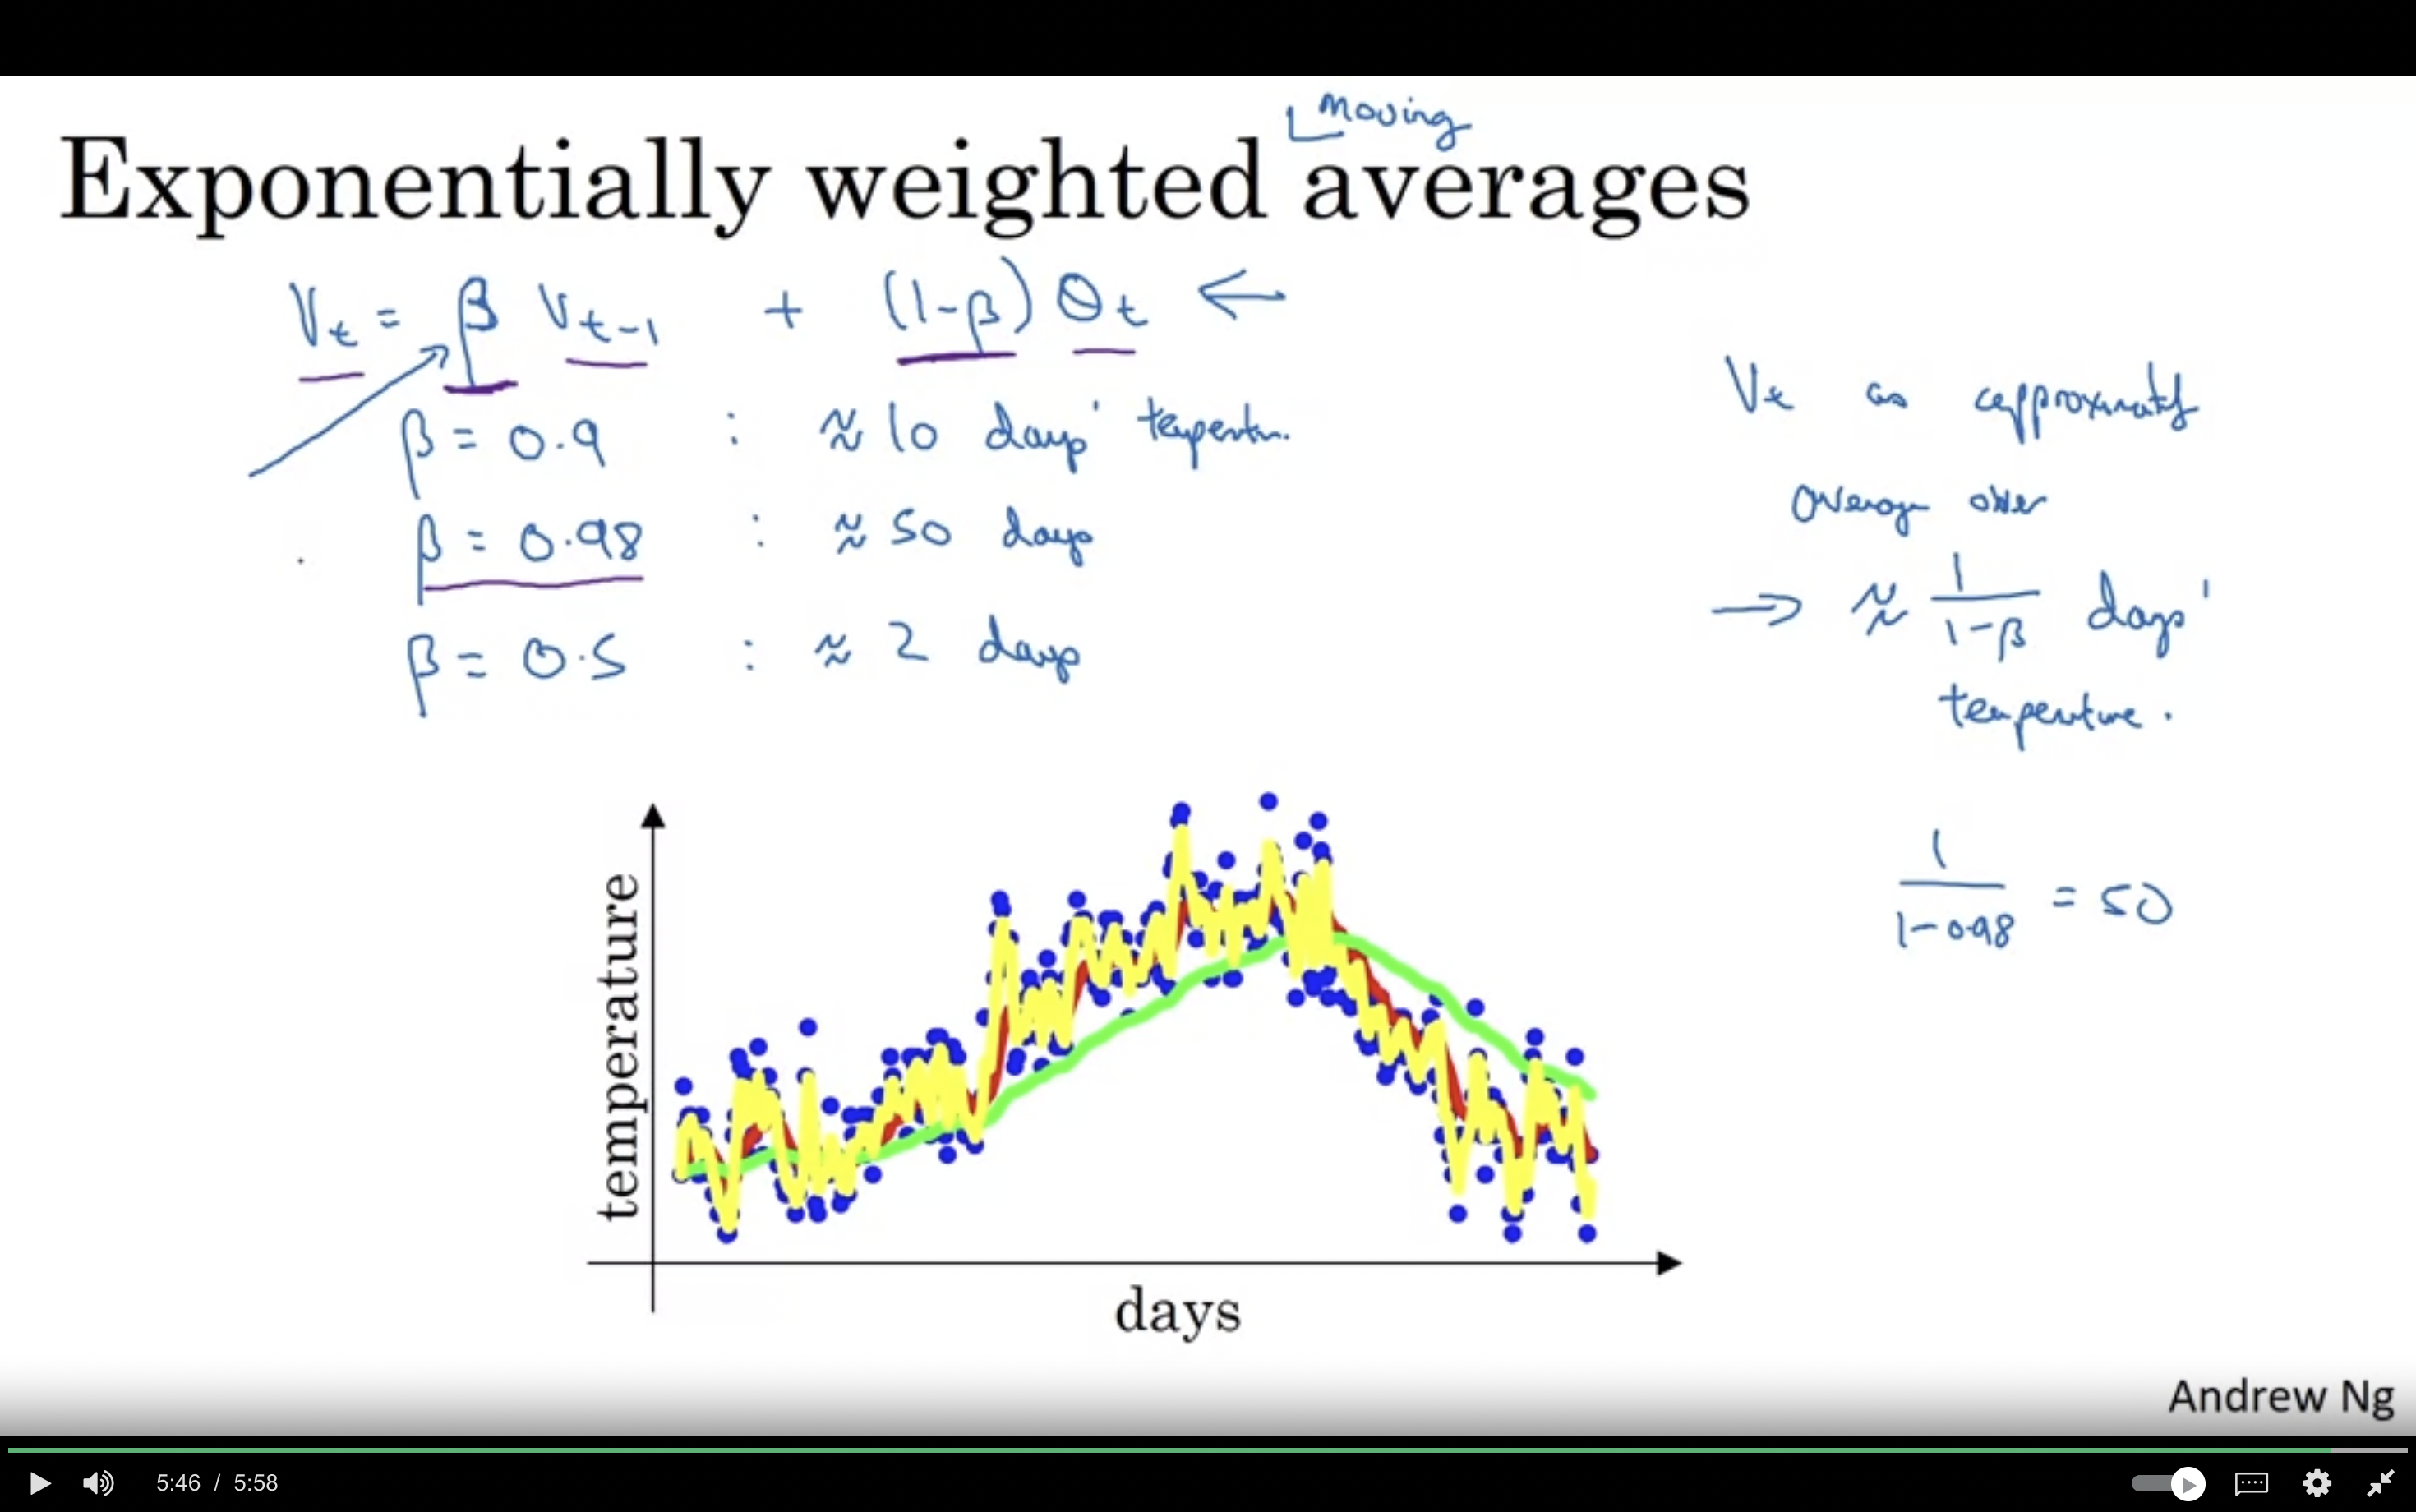 Moving
Exponentially weighted averages
Vt = β Vt-1 + (1-β) θt ←
β = 0.9 : ≈ 10 days' temperature.
β = 0.98 : ≈ 50 days
β = 0.5 : ≈ 2 days
Vt as approximately
average over
→ ≈ 1/(1-β) days'
temperature.
1/(1-0.98) = 50
temperature
days
Andrew Ng
5:46 / 5:58